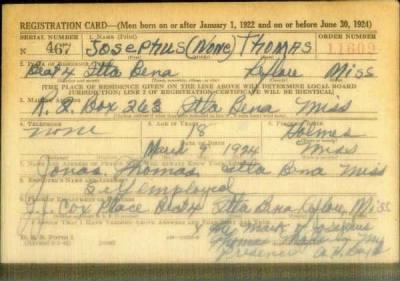 REGISTRATION CARD—(Men born on or after January 1, 1922 and on or before June 30, 1924)
SERIAL NUMBER 1. Name (Print) ORDER NUMBER
N 467 JOSEPHUS (None) THOMAS 11609
2. Place of Residence (Print)
Beat 4 Itta Bena Leflore Miss
[THE PLACE OF RESIDENCE GIVEN ON THE LINE ABOVE WILL DETERMINE LOCAL BOARD
JURISDICTION; LINE 2 OF REGISTRATION CERTIFICATE WILL BE IDENTICAL]
3. Mailing Address
R. 2 Box 263 Itta Bena Miss
4. Telephone 5. Age in Years 6. Place of Birth
none 18 Holmes
Date of Birth
1924 Miss
7. Name and Address of Person Who Will Always Know Your Address
Jonas Thomas Itta Bena Miss
8. Employer's Name and Address
Self employed
9. Place of Employment or Business
J. J. Cox Place Beat 4 Itta Bena Leflore Miss
I Affirm That I Have Verified Above Answers and That They Are True.
X
The Mark of Josephus
Thomas Made in my
Presence